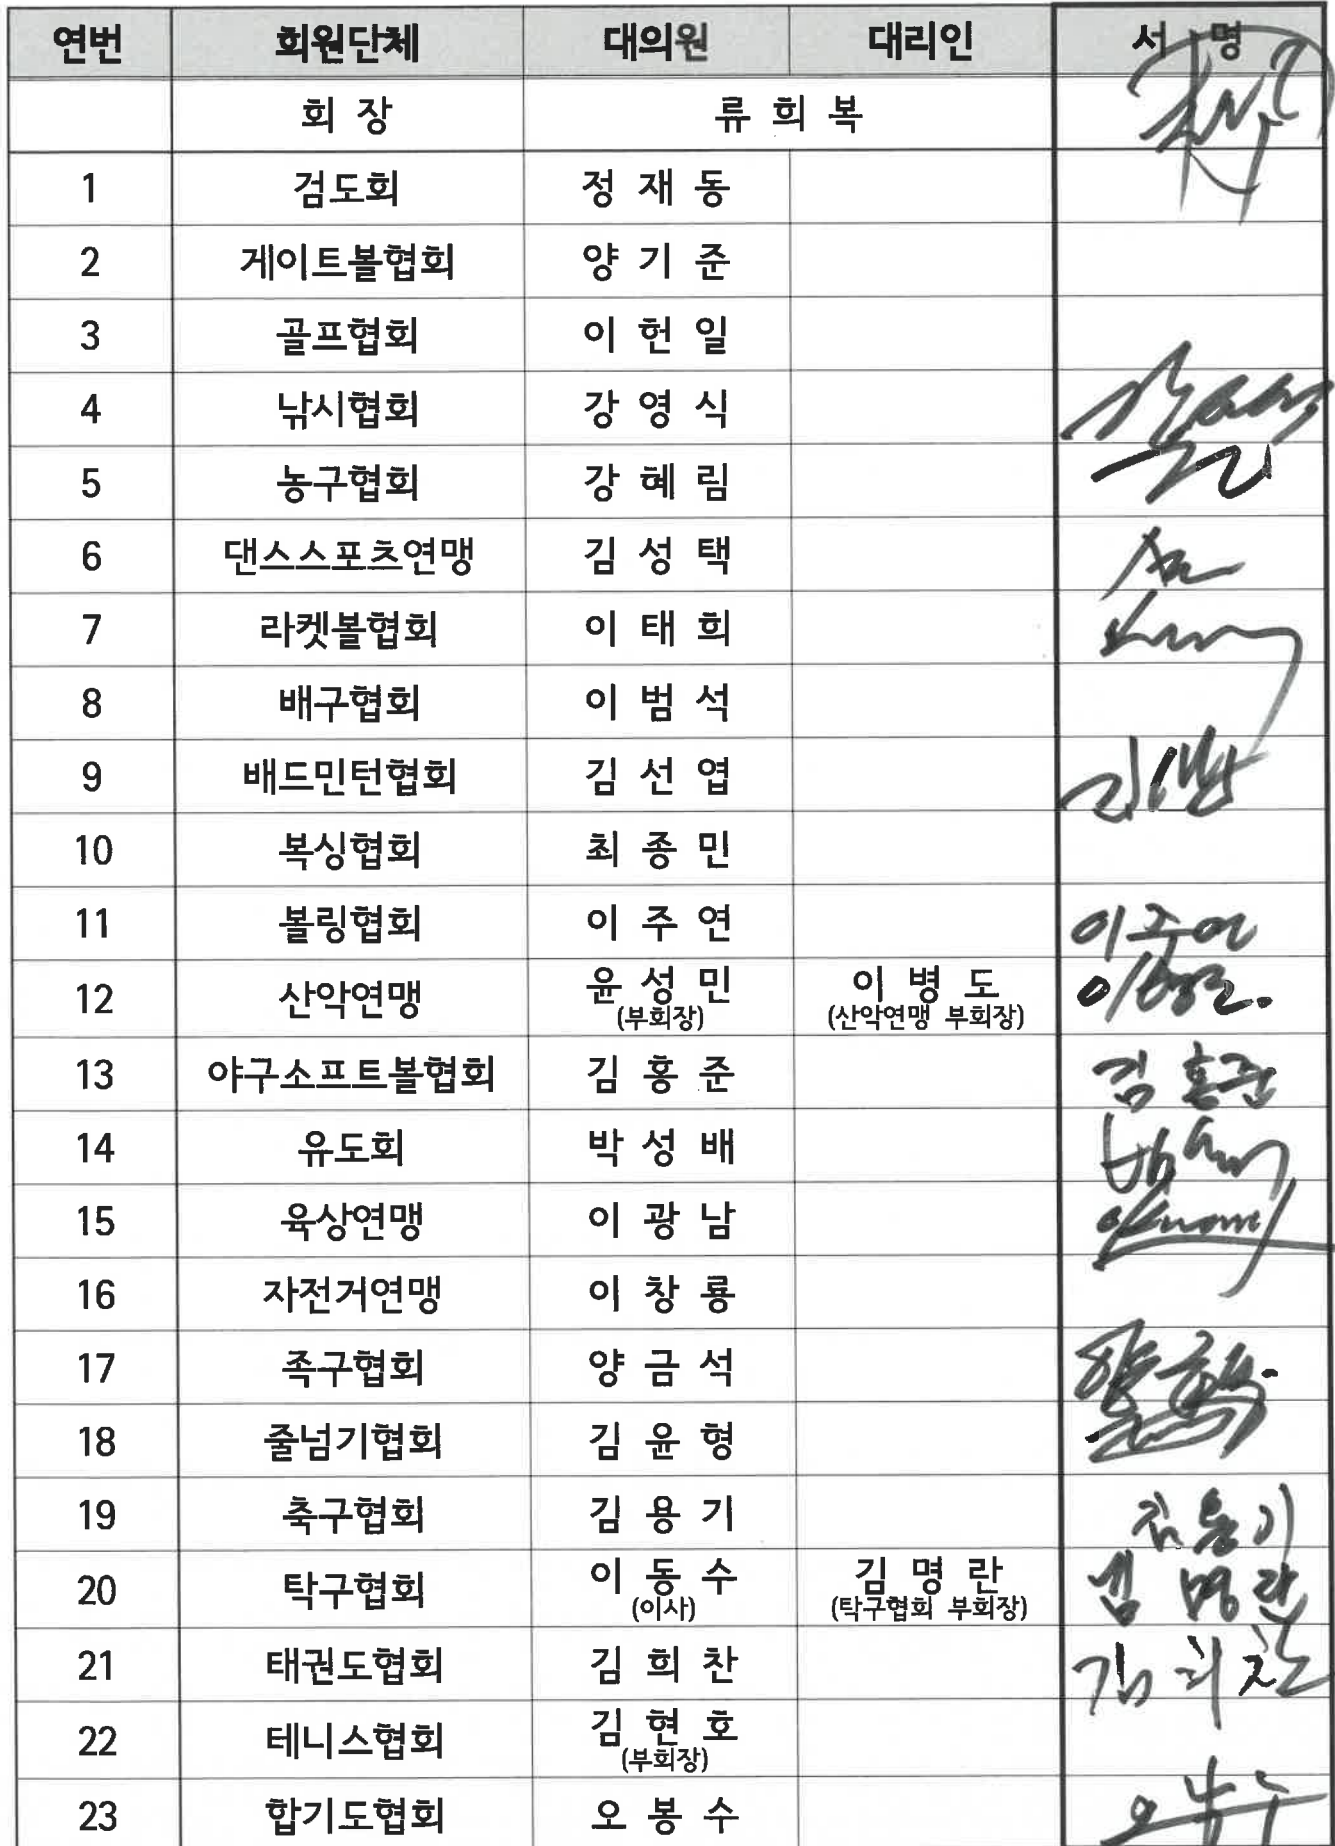 연번 회원단체 대의원 대리인 서 명
회 장 류 희 복
1 검도회 정 재 동
2 게이트볼협회 양 기 준
3 골프협회 이 헌 일
4 낚시협회 강 영 식
5 농구협회 강 혜 림
6 댄스스포츠연맹 김 성 택
7 라켓볼협회 이 태 희
8 배구협회 이 범 석
9 배드민턴협회 김 선 엽
10 복싱협회 최 종 민
11 볼링협회 이 주 연 이주연
12 산악연맹 윤 성 민 이 병 도
(부회장) (산악연맹 부회장)
13 야구소프트볼협회 김 홍 준 김 홍준
14 유도회 박 성 배
15 육상연맹 이 광 남
16 자전거연맹 이 창 룡
17 족구협회 양 금 석
18 줄넘기협회 김 윤 형
19 축구협회 김 용 기 김 용 기
20 탁구협회 이 동 수 김 명 란 김 명 란
(이사) (탁구협회 부회장)
21 태권도협회 김 희 찬 김 희 찬
22 테니스협회 김 현 호
(부회장)
23 합기도협회 오 봉 수 오 봉 수